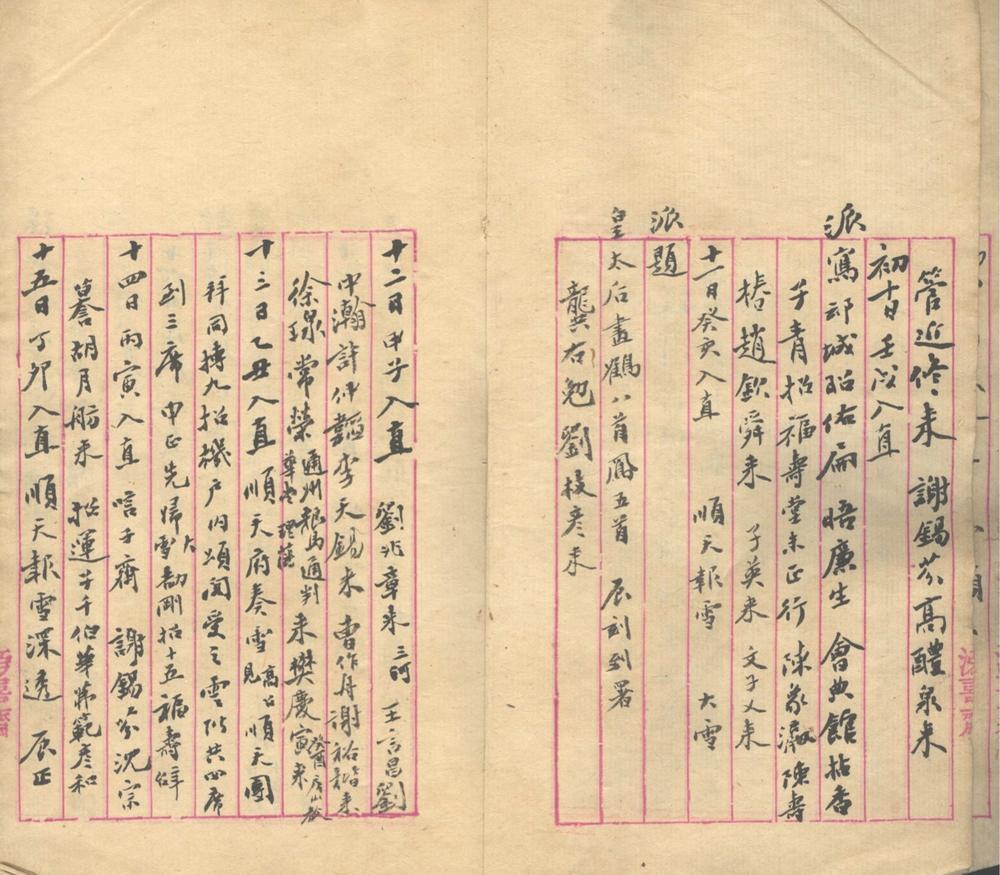 管近修来 謝錫芬高醴泉来
初十日壬戌入直
派寫邙城昭佑扁 晤廉生 會典館拈香
子青招福壽堂未正行 陳家瀫陳壽
椿趙欽舜来 子英来 文子乂来
十一日癸亥入直 順天報雪 大雪
派題
皇太后畫鶴八首鳳五首 辰刻到署
龔右勉劉枝彦来
十二日甲子入直 劉兆章来三河 王言昌劉
中瀚許仲韜李天錫来 曹作舟謝裕楷来
徐琮常榮通州粮馬通判 来樊慶寅来
十三日乙丑入直 順天府奏雪 見 順天團
拜同摶九招機戶内頌閣受之雲階共四席
到三席 申正先歸大雪劼剛招十五福壽辞
十四日丙寅入直 唁子齋 謝錫芬沈宗
謩胡月舫来 松運芊千伯華希範彦和
十五日丁卯入直順天報雪深透 辰正